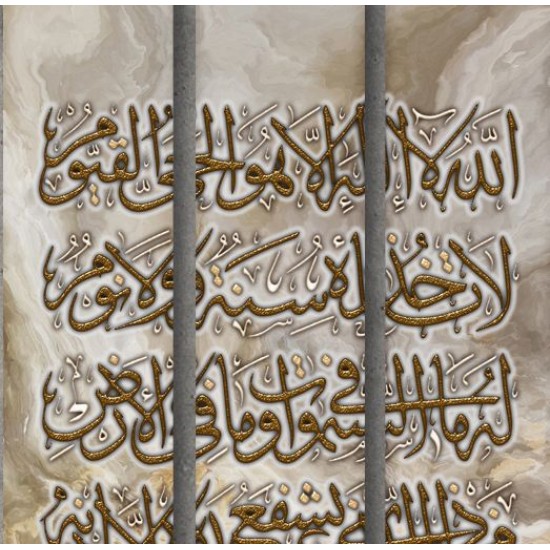 الله لا إله إلا هو الحي القيوم
لا تأخذه سنة ولا نوم
له ما في السموات وما في الأرض
من ذا الذي يشفع عنده إلا بإذنه